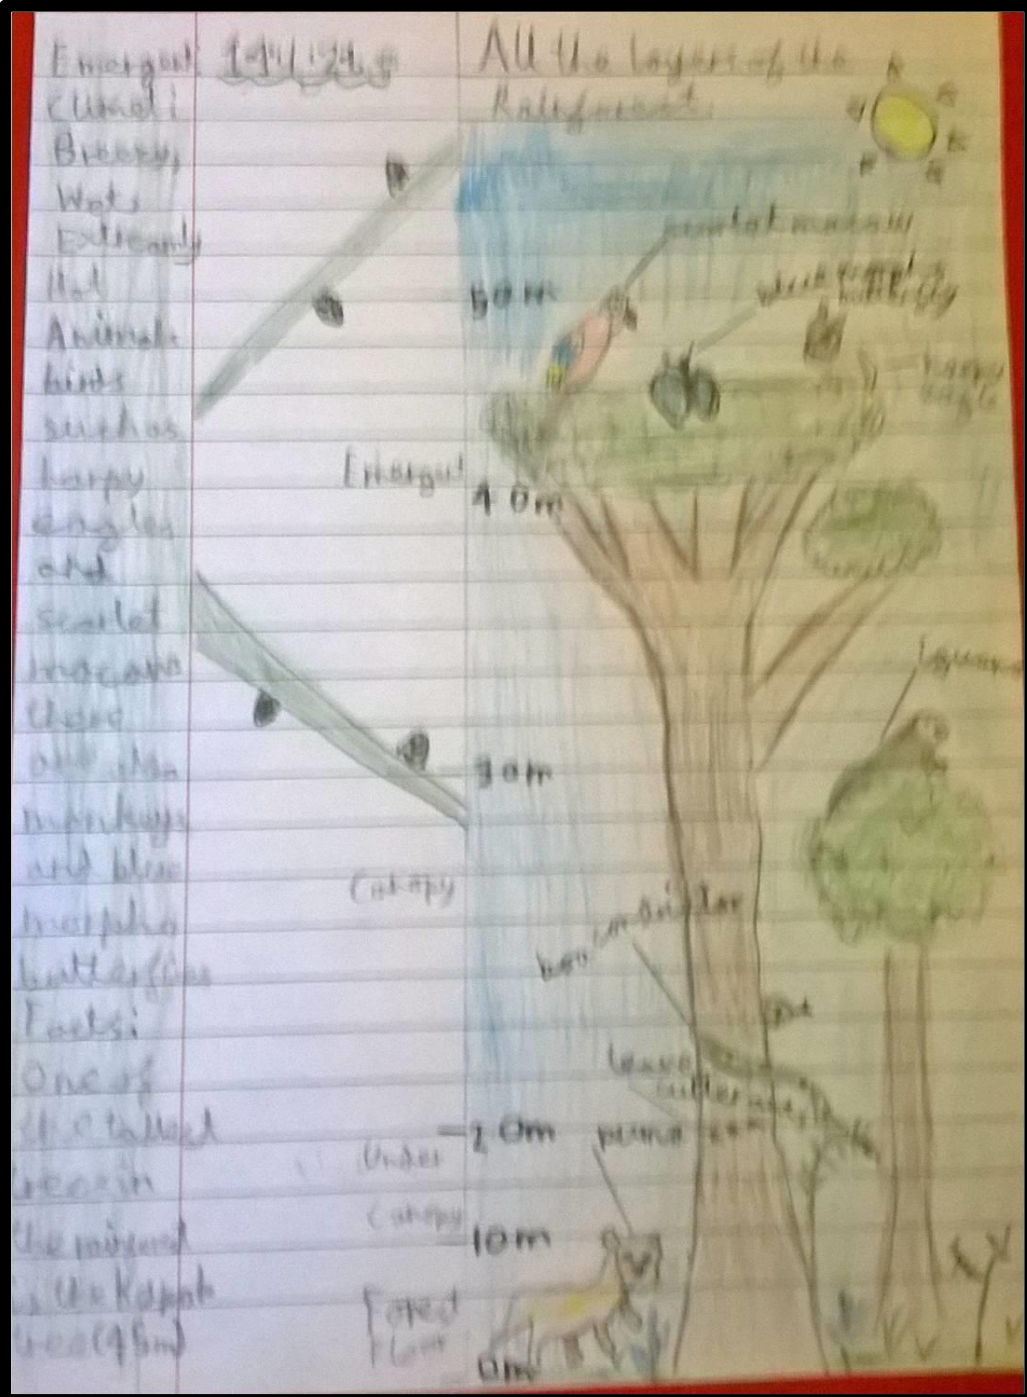 Emergent
climati
Breezy,
Wet,
Extreamly
Hot
Animals
birds
suchas
harpy
eagles
and
scarlet
macaws
there
are also
monkeys
and blue
morpho
butterflies
Facts:
One of
the tallest
trees in
the
is the Kapok
tree (45m)
All the layers of the
Rainforest
50m
scarlet macaw
butterfly
harpy
eagle
Emergent
40m
Iguana
30m
Canopy
boa
leave
cutter ants
20m
puma
Under
Canopy
10m
Forest
Floor
0m